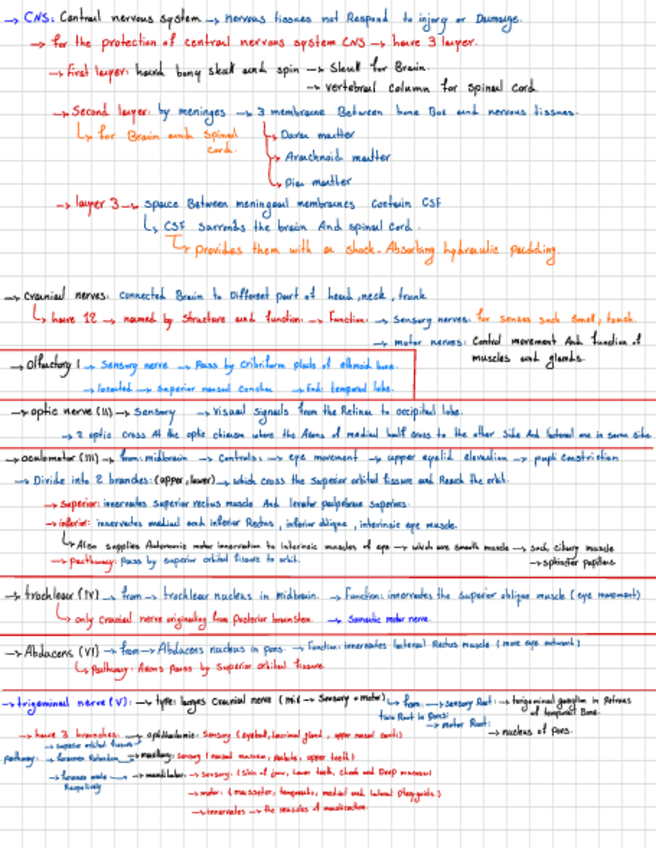 → CNS: Central nervous system → nervous tissues not Respond to injory or Damage.
→ for the protection of central nervous system CNS → have 3 layer.
→ First layer: hard bony skull and spin → Skull for Brain.
→ vertebral column for spinal cord.
→ Second layer: by meninges → 3 membrane Between bone Box and nervous tissues.
↳ for Brain and Spinal cord.
→ Dura matter
→ Arachnoid matter
→ Pia matter
→ layer 3 → space Between meningeal membranes Contain CSF
↳ CSF Surronds the brain And spinal cord.
↳ provides them with a shock-Absorbing hydraulic padding.
→ Cranial nerves: Connected Brain to Different part of head, neck, trunk
↳ have 12 → named by Structure and function: → Function: → Sensory nerves: for senses such smell, touch.
→ motor nerves: Control movement And function of muscles and glands.
→ Olfactory I → Sensory nerve → Pass by Cribriform plate of ethmoid bone.
→ located → Superior nasal concha → End: temporal lobe.
→ optic nerve (II) → Sensory → Visual signals from the Retina to occipital lobe.
→ 2 optic cross At the optic chiasm where the Axons of medial half cross to the other Side And lateral one in same side.
→ oculomotor (III) → from: midbrain → Controls: → eye movement → upper eyelid elevation → pupil constriction
→ Divide into 2 branches: (upper, lower) → which cross the Superior orbital fissure and Reach the orbit.
→ Superior: innervates superior rectus muscle And levator palpebrae superioris.
→ inferior: innervates medial and inferior Rectus, inferior oblique, interinsic eye muscle.
↳ Also supplies Autonomic motor innervation to Interinsic muscles of eye → which are smooth muscle → such ciliary muscle
→ sphincter pupillae
→ Pathway: Pass by superior orbital fissure to orbit.
→ trochlear (IV) → from → trochlear nucleus in midbrain. → Function: innervates the superior oblique muscle (eye movement)
↳ only cranial nerve originating from Posterior brainstem. → Somatic motor nerve.
→ Abdacens (VI) → from → Abdacens nucleus in pons. → Function: innervates lateral Rectus muscle (move eye outward)
↳ Pathway: Axons pass by Superior orbital fissure
→ trigeminal nerve (V): → type: larges Cranial nerve (mix → Sensory + motor) → from: two Root in Pons: → sensory Root: → trigeminal ganglion in Petrous of temporal Bone.
→ motor Root: → nucleus of pons.
→ have 3 branches: → ophthalmic: Sensory (eyelid, lacrimal gland, upper nasal cavity)
pathway: → superior orbital fissure
→ foramen Rotundum → maxillary: Sensory (nasal mucosa, palate, upper teeth)
→ foramen ovale → mandibular: → Sensory: (skin of jaw, lower teeth, cheek and Deep mucosal
Respectively
→ motor: (masseter, temporalis, medial and lateral Pterygoids)
→ innervates → the muscles of mastication.